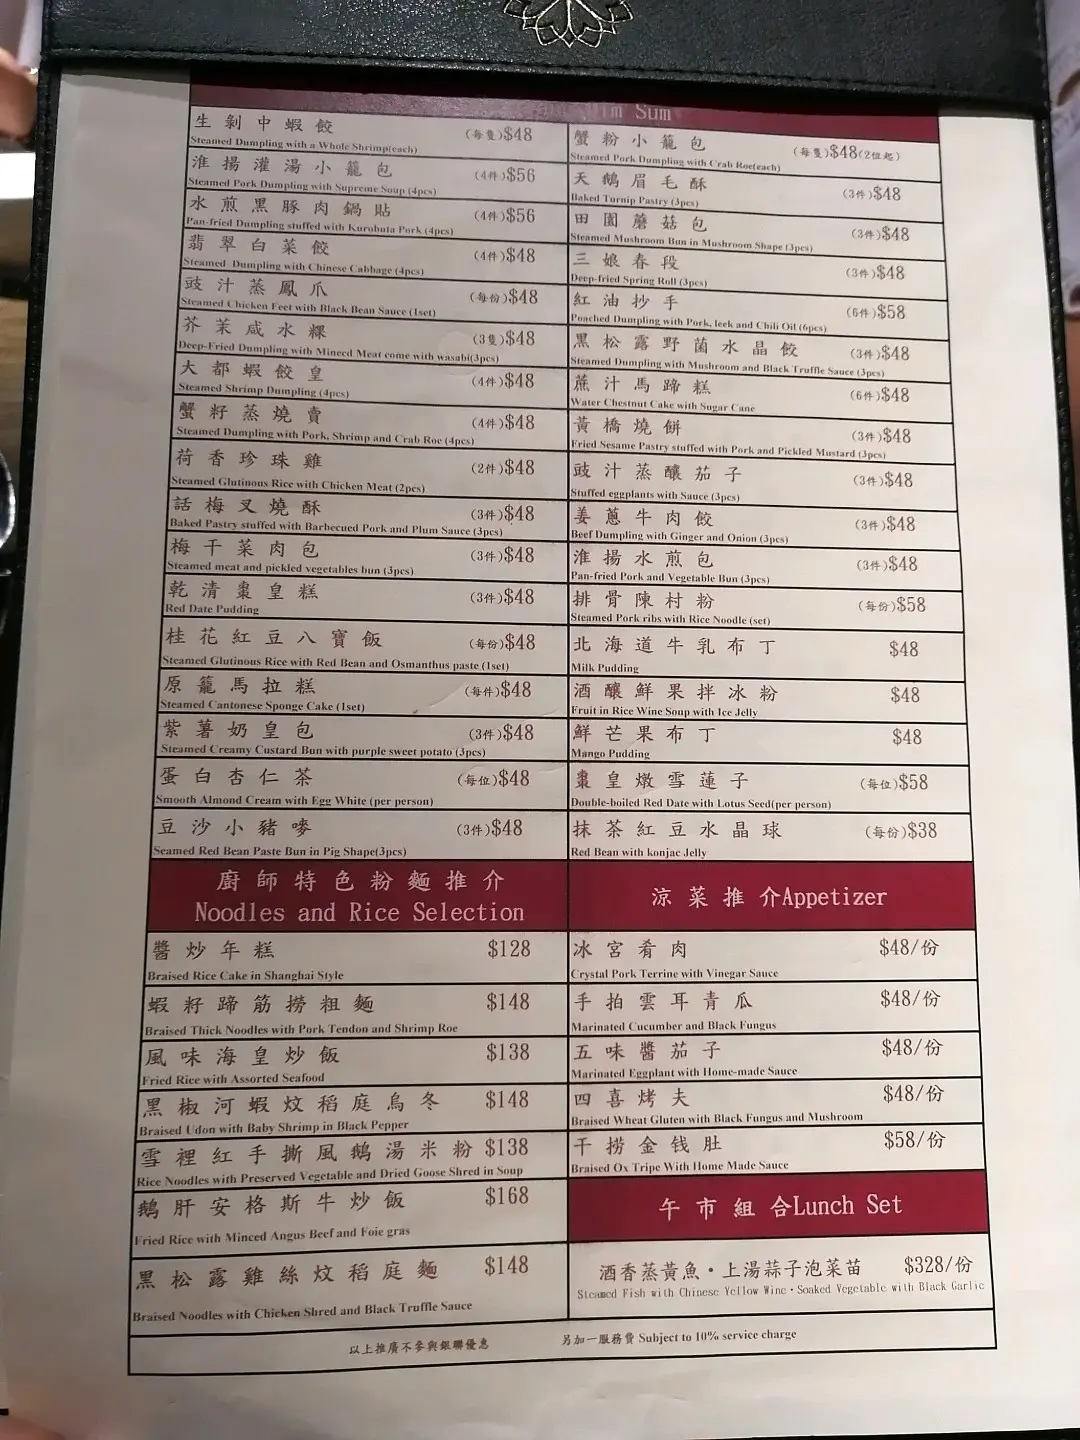 Dim Sum
生剝中蝦餃 (每隻)$48
Steamed Dumpling with a Whole Shrimp(each)
淮揚灌湯小籠包 (4件)$56
Steamed Pork Dumpling with Supreme Soup (4pcs)
水煎黑豚肉鍋貼 (4件)$56
Pan-fried Dumpling stuffed with Kurobuta Pork (4pcs)
翡翠白菜餃 (4件)$48
Steamed Dumpling with Chinese Cabbage (4pcs)
豉汁蒸鳳爪 (每份)$48
Steamed Chicken Feet with Black Bean Sauce (1set)
芥茉咸水粿 (3隻)$48
Deep-Fried Dumpling with Minced Meat come with wasabi(3pcs)
大都蝦餃皇 (4件)$48
Steamed Shrimp Dumpling (4pcs)
蟹籽蒸燒賣 (4件)$48
Steamed Dumpling with Pork, Shrimp and Crab Roe (4pcs)
荷香珍珠雞 (2件)$48
Steamed Glutinous Rice with Chicken Meat (2pcs)
話梅叉燒酥 (3件)$48
Baked Pastry stuffed with Barbecued Pork and Plum Sauce (3pcs)
梅干菜肉包 (3件)$48
Steamed meat and pickled vegetables bun (3pcs)
乾清棗皇糕 (3件)$48
Red Date Pudding
桂花紅豆八寶飯 (每份)$48
Steamed Glutinous Rice with Red Bean and Osmanthus paste (1set)
原籠馬拉糕 (每件)$48
Steamed Cantonese Sponge Cake (1set)
紫薯奶皇包 (3件)$48
Steamed Creamy Custard Bun with purple sweet potato (3pcs)
蛋白杏仁茶 (每位)$48
Smooth Almond Cream with Egg White (per person)
豆沙小豬嘜 (3件)$48
Seamed Red Bean Paste Bun in Pig Shape(3pcs)
蟹粉小籠包 (每隻)$48(2位起)
Steamed Pork Dumpling with Crab Roe(each)
天鵝眉毛酥 (3件)$48
Baked Turnip Pastry (3pcs)
田園蘑菇包 (3件)$48
Steamed Mushroom Bun in Mushroom Shape (3pcs)
三娘春段 (3件)$48
Deep-fried Spring Roll (3pcs)
紅油抄手 (6件)$58
Poached Dumpling with Pork, leek and Chili Oil (6pcs)
黑松露野菌水晶餃 (3件)$48
Steamed Dumpling with Mushroom and Black Truffle Sauce (3pcs)
蔗汁馬蹄糕 (6件)$48
Water Chestnut Cake with Sugar Cane
黃橋燒餅 (3件)$48
Fried Sesame Pastry stuffed with Pork and Pickled Mustard (3pcs)
豉汁蒸釀茄子 (3件)$48
Stuffed eggplants with Sauce (3pcs)
姜蔥牛肉餃 (3件)$48
Beef Dumpling with Ginger and Onion (3pcs)
淮揚水煎包 (3件)$48
Pan-fried Pork and Vegetable Bun (3pcs)
排骨陳村粉 (每份)$58
Steamed Pork ribs with Rice Noodle (set)
北海道牛乳布丁 $48
Milk Pudding
酒釀鮮果拌冰粉 $48
Fruit in Rice Wine Soup with Ice Jelly
鮮芒果布丁 $48
Mango Pudding
棗皇燉雪蓮子 (每位)$58
Double-boiled Red Date with Lotus Seed(per person)
抹茶紅豆水晶球 (每份)$38
Red Bean with konjac Jelly
廚師特色粉麵推介
Noodles and Rice Selection
醬炒年糕 $128
Braised Rice Cake in Shanghai Style
蝦籽蹄筋撈粗麵 $148
Braised Thick Noodles with Pork Tendon and Shrimp Roe
風味海皇炒飯 $138
Fried Rice with Assorted Seafood
黑椒河蝦炆稻庭烏冬 $148
Braised Udon with Baby Shrimp in Black Pepper
雪裡紅手撕風鵝湯米粉 $138
Rice Noodles with Preserved Vegetable and Dried Goose Shred in Soup
鵝肝安格斯牛炒飯 $168
Fried Rice with Minced Angus Beef and Foie gras
黑松露雞絲炆稻庭麵 $148
Braised Noodles with Chicken Shred and Black Truffle Sauce
涼菜推介Appetizer
冰宮肴肉 $48/份
Crystal Pork Terrine with Vinegar Sauce
手拍雲耳青瓜 $48/份
Marinated Cucumber and Black Fungus
五味醬茄子 $48/份
Marinated Eggplant with Home-made Sauce
四喜烤夫 $48/份
Braised Wheat Gluten with Black Fungus and Mushroom
干撈金钱肚 $58/份
Braised Ox Tripe With Home Made Sauce
午市組合Lunch Set
酒香蒸黃魚・上湯蒜子泡菜苗 $328/份
Steamed Fish with Chinese Yellow Wine・Soaked Vegetable with Black Garlic
以上推廣不參與銀聯優惠 另加一服務費 Subject to 10% service charge